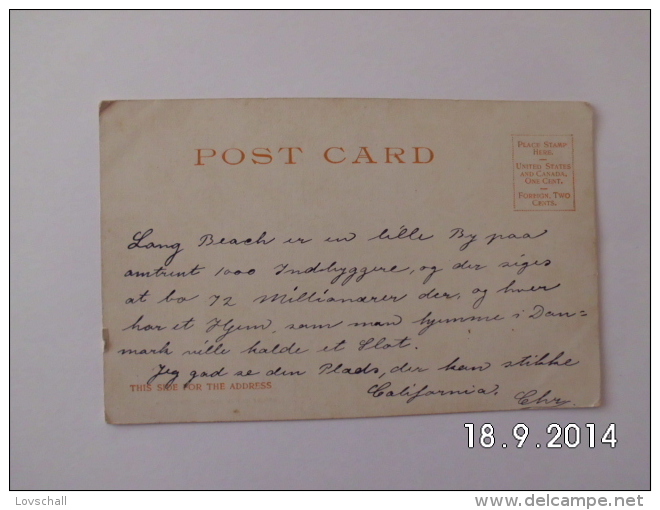 POST CARD
PLACE STAMP
HERE.
UNITED STATES
AND CANADA,
ONE CENT.
FOREIGN, TWO
CENTS.
Long Beach er en lille By paa
omtrent 1000 Indbyggere, og der siges
at bo 72 Millionærer der, og hver
har et Hjem, som man hjemme i Dan-
mark ville kalde et Slot.
Jeg gad se den Plads, der kan stikke
THIS SIDE FOR THE ADDRESS
California.
Chr.
18.9.2014
Lovschall
delcampe.net